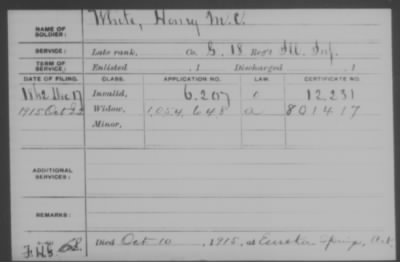 NAME OF SOLDIER: White, Henry M.C.
SERVICE: Late rank, Co. G. 18 Reg't Ill. Inf.
TERM OF SERVICE: Enlisted , 1 Discharged , 1
DATE OF FILING. CLASS. APPLICATION NO. LAW. CERTIFICATE NO.
1862 Dec 17 Invalid, 6.207 12.231
1915 Oct 22 Widow, 1,054,648 a 801417
Minor,
ADDITIONAL SERVICES:
REMARKS:
Died Oct 10, 1915, at Eureka Springs, Ark